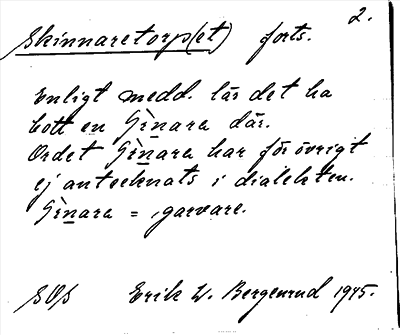 2.
Skinnaretorp(et) forts.
Enligt medd. lär det ha
bott en Sìnara där.
Ordet Sìnara har för övrigt
ej antecknats i dialekten.
Sìnara = garvare.
SOs Erik W. Bergenrud 1945.